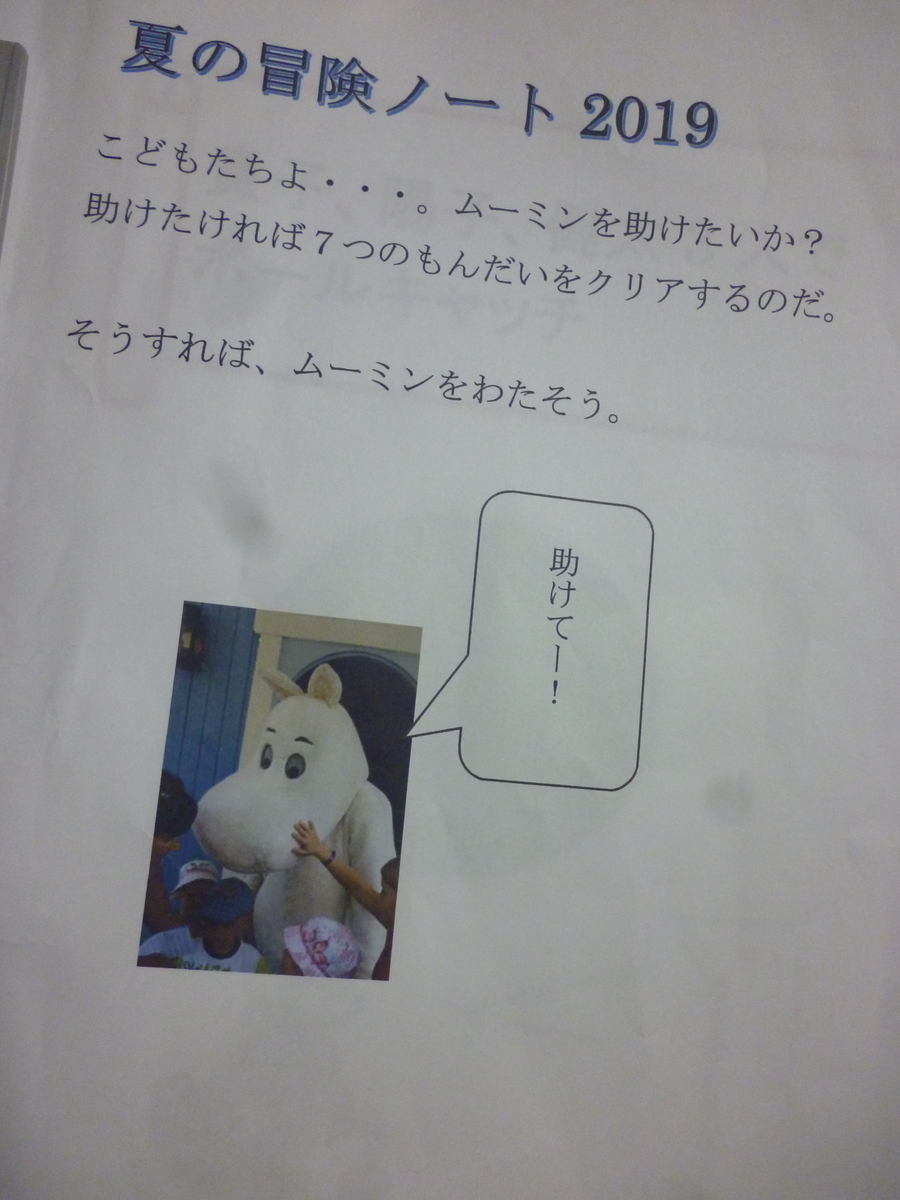 夏の冒険ノート 2019
こどもたちよ・・・。ムーミンを助けたいか？
助けたければ７つのもんだいをクリアするのだ。
そうすれば、ムーミンをわたそう。
助けてー！